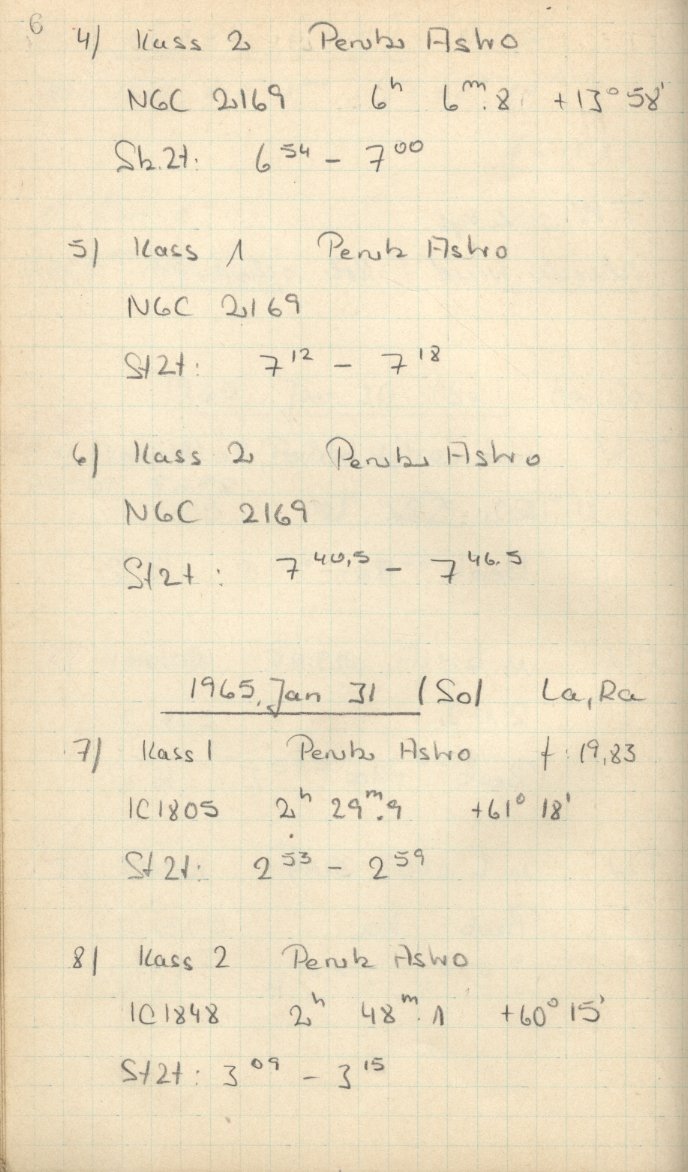 6
4) Kass 2 Perutz Astro
NGC 2169 6ʰ 6ᵐ.8 +13° 58'
St.Zt: 6⁵⁴ – 7⁰⁰
5) Kass 1 Perutz Astro
NGC 2169
StZt: 7¹² – 7¹⁸
6) Kass 2 Perutz Astro
NGC 2169
StZt: 7⁴⁰,⁵ – 7⁴⁶.⁵
1965, Jan 31 (So) La, Ra
7) Kass 1 Perutz Astro f: 19,83
IC1805 2ʰ 29ᵐ.9 +61° 18'
StZt: 2⁵³ – 2⁵⁹
8) Kass 2 Perutz Astro
IC1848 2ʰ 48ᵐ.1 +60° 15'
StZt: 3⁰⁹ – 3¹⁵